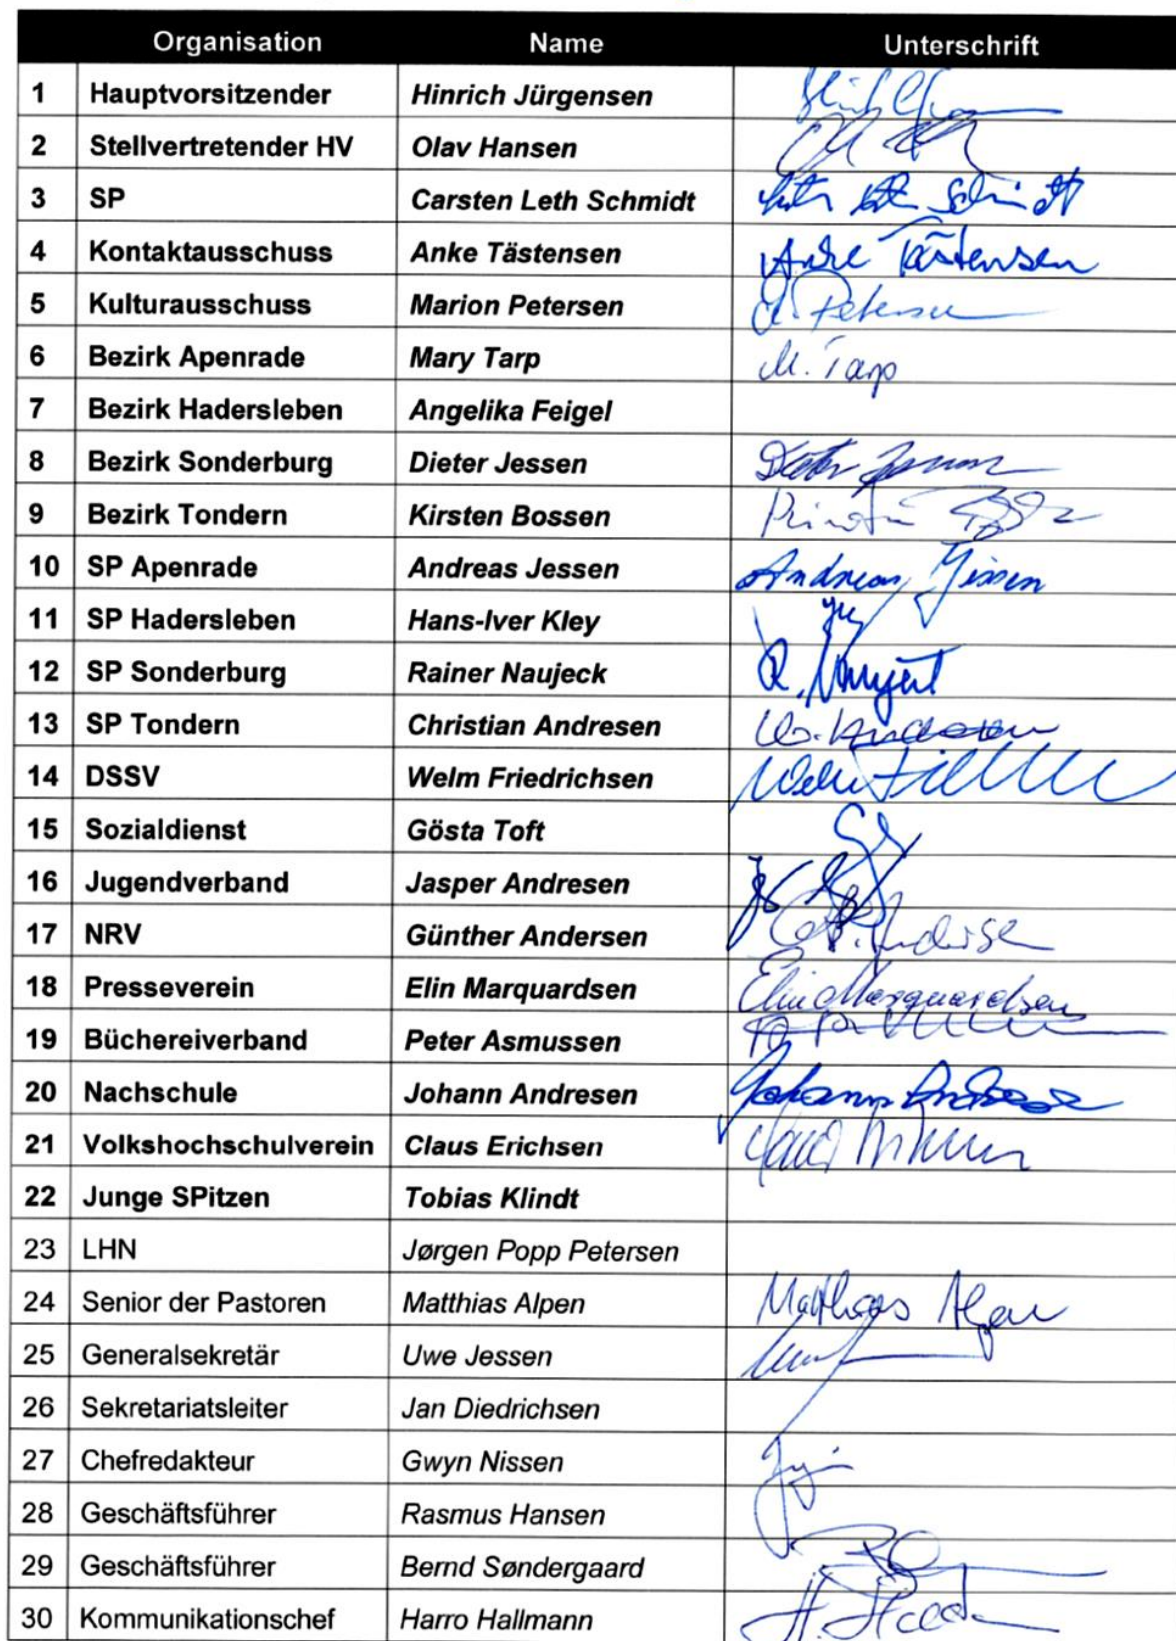 Organisation Name Unterschrift
1 Hauptvorsitzender Hinrich Jürgensen
2 Stellvertretender HV Olav Hansen
3 SP Carsten Leth Schmidt Schmidt
4 Kontaktausschuss Anke Tästensen Anke Tästensen
5 Kulturausschuss Marion Petersen Petersen
6 Bezirk Apenrade Mary Tarp M. Tarp
7 Bezirk Hadersleben Angelika Feigel
8 Bezirk Sonderburg Dieter Jessen
9 Bezirk Tondern Kirsten Bossen
10 SP Apenrade Andreas Jessen Andreas Jessen
11 SP Hadersleben Hans-Iver Kley
12 SP Sonderburg Rainer Naujeck
13 SP Tondern Christian Andresen
14 DSSV Welm Friedrichsen
15 Sozialdienst Gösta Toft
16 Jugendverband Jasper Andresen
17 NRV Günther Andersen
18 Presseverein Elin Marquardsen Elin Marquardsen
19 Büchereiverband Peter Asmussen
20 Nachschule Johann Andresen Johann Andresen
21 Volkshochschulverein Claus Erichsen
22 Junge SPitzen Tobias Klindt
23 LHN Jørgen Popp Petersen
24 Senior der Pastoren Matthias Alpen Matthias Alpen
25 Generalsekretär Uwe Jessen
26 Sekretariatsleiter Jan Diedrichsen
27 Chefredakteur Gwyn Nissen
28 Geschäftsführer Rasmus Hansen
29 Geschäftsführer Bernd Søndergaard
30 Kommunikationschef Harro Hallmann